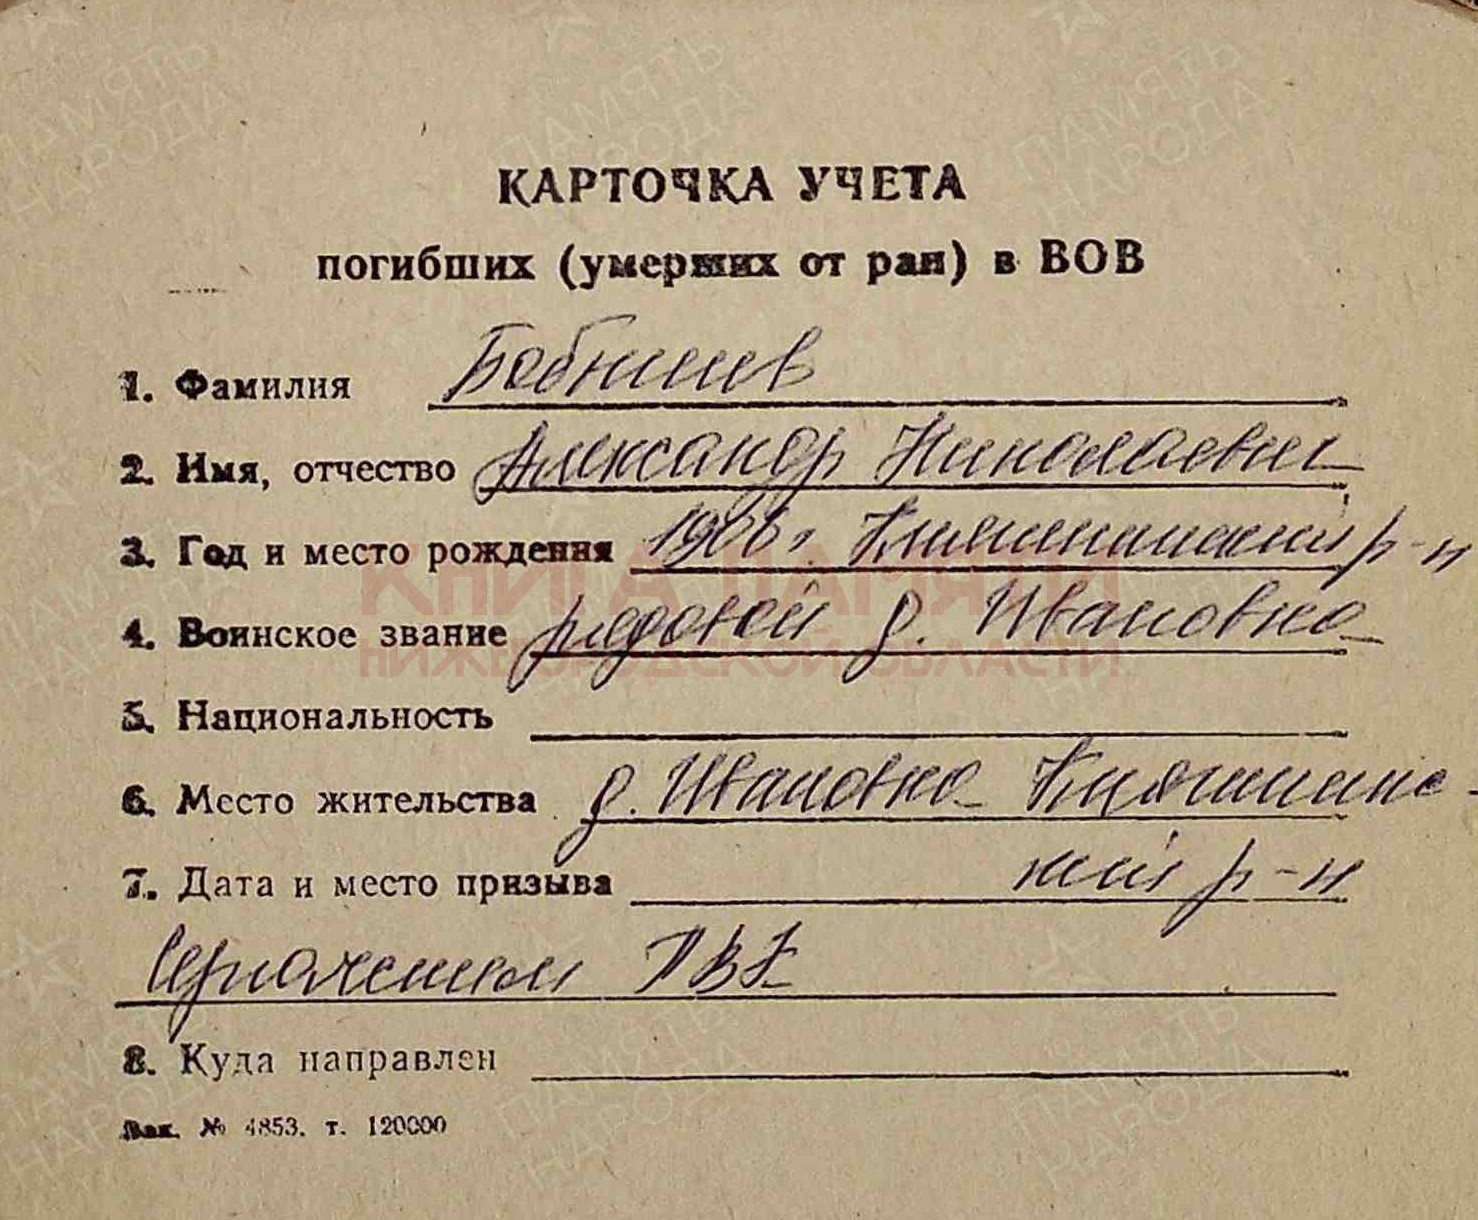 КАРТОЧКА УЧЕТА
погибших (умерших от ран) в ВОВ
1. Фамилия
2. Имя, отчество Александр Николаевич
3. Год и место рождения р-н
4. Воинское звание рядовой д. Ивановка
5. Национальность
6. Место жительства д. Ивановка
7. Дата и место призыва кий р-н
Сергачским РВК
8. Куда направлен
Зак. № 4853. т. 120000
КНИГА ПАМЯТИ
НИЖЕГОРОДСКОЙ ОБЛАСТИ
ПАМЯТЬ
НАРОДА